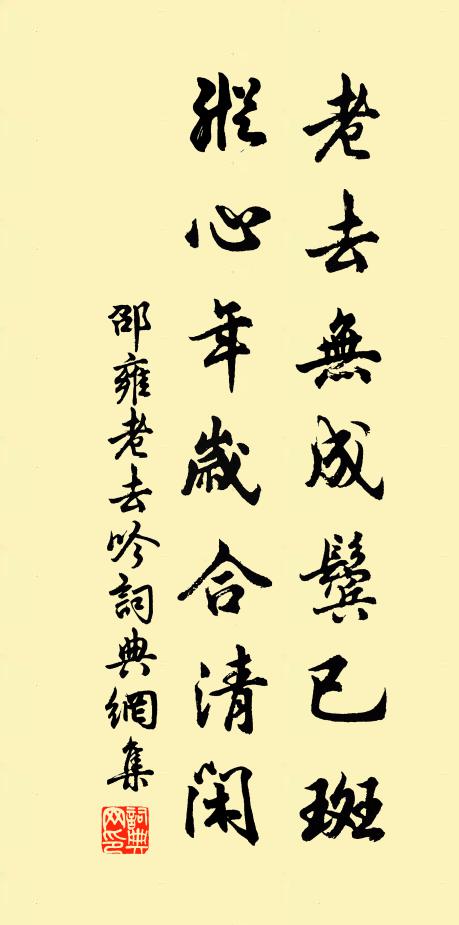 老去無成鬢已斑
縱心年歲合清閑
邵雍老去吟詞典網集
詞典网印